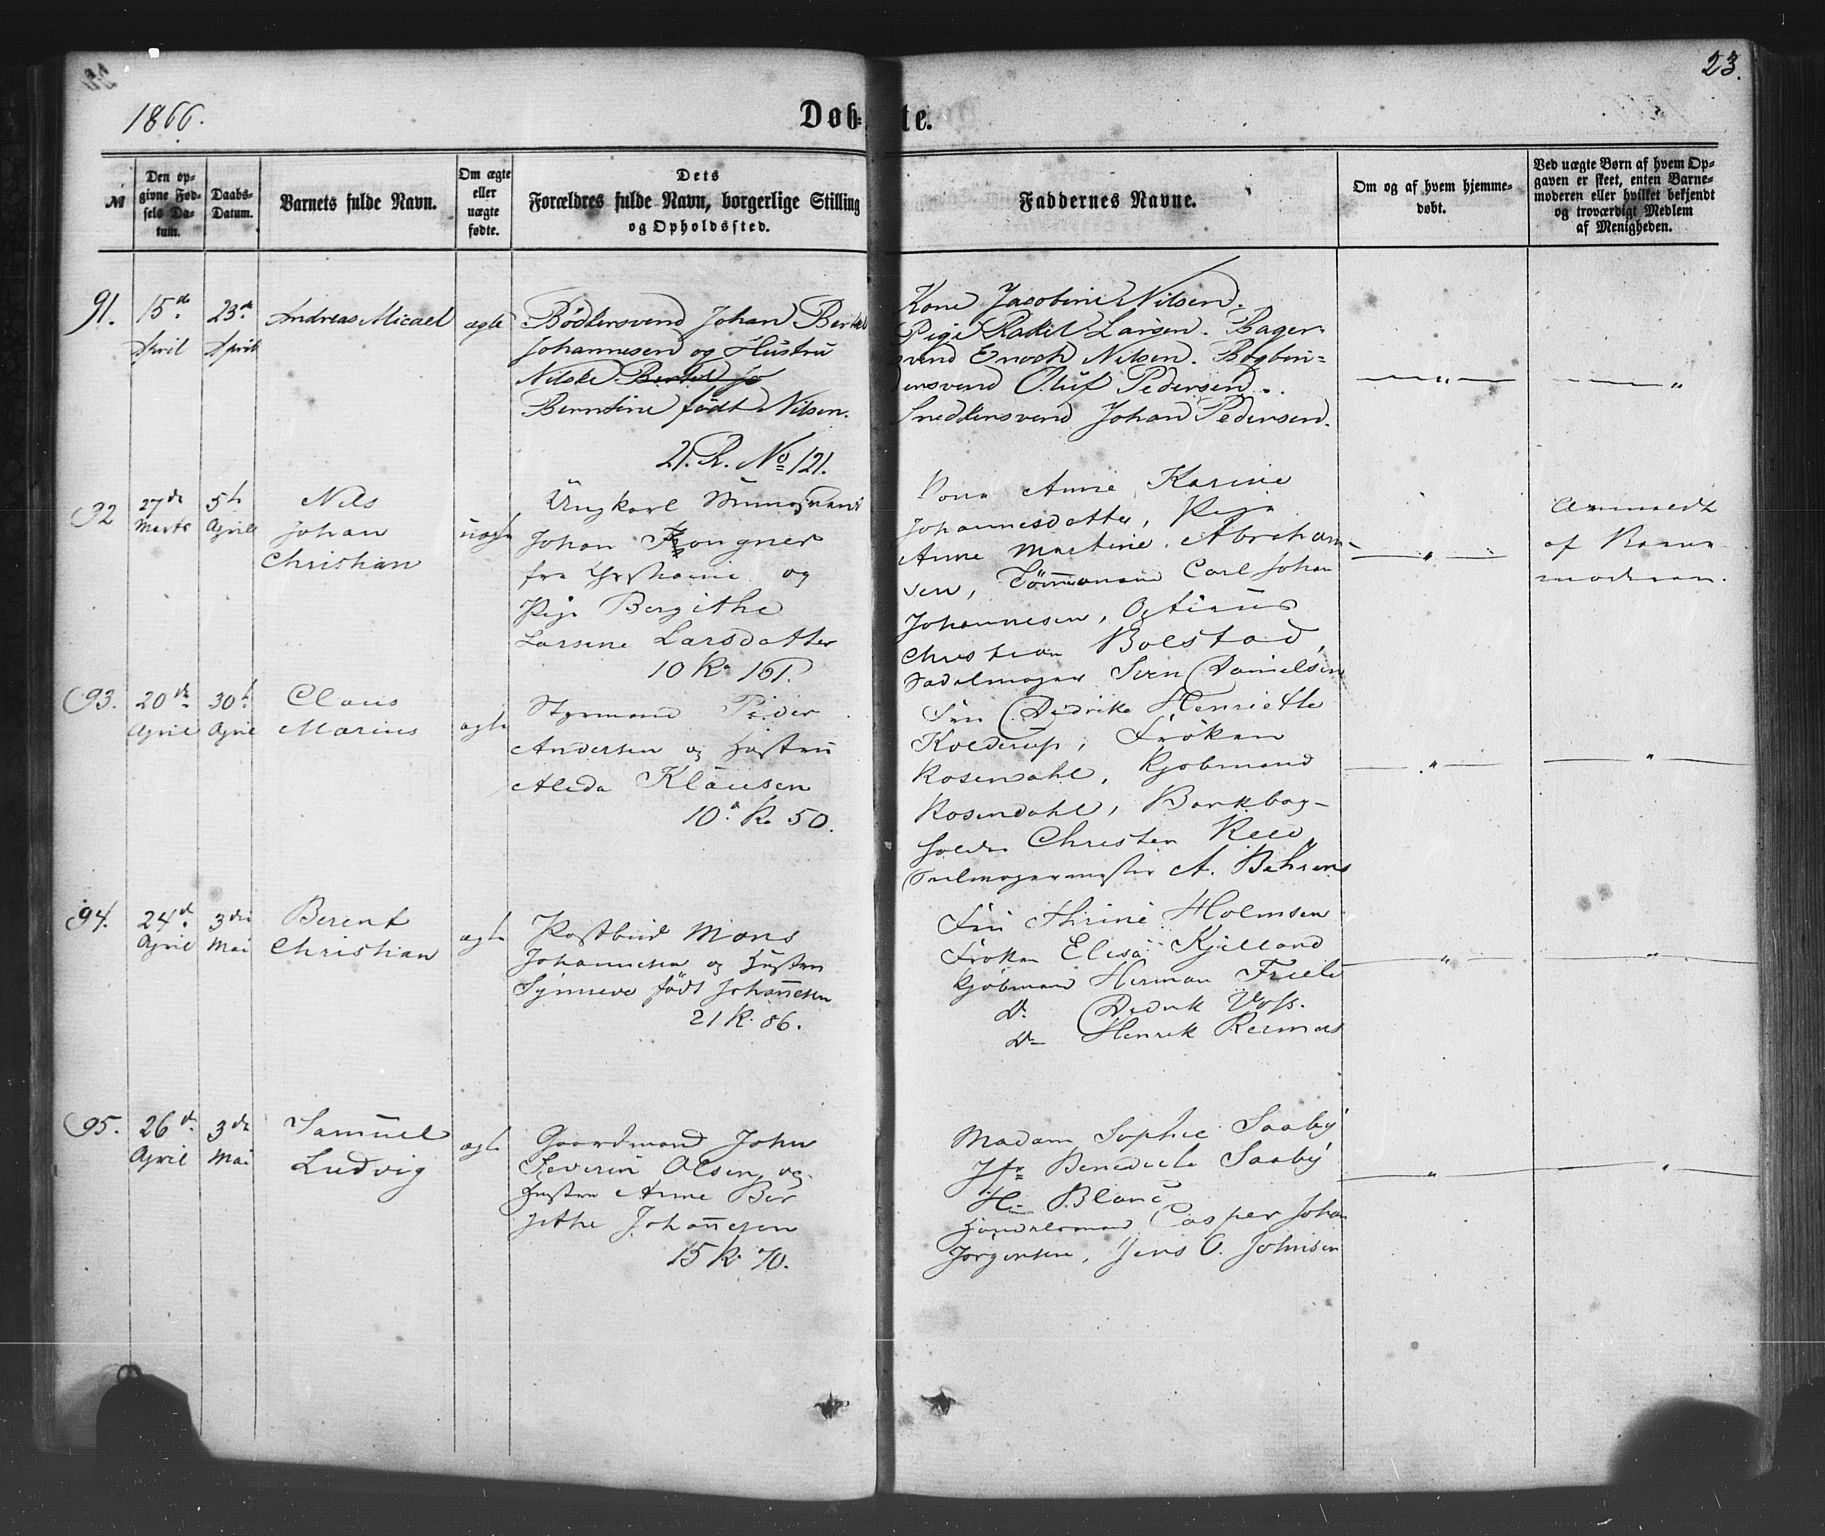 23.
1866.
Døb-te.
№
Den op-
givne Fød-
sels Da-
tum.
Daabs-
Datum.
Barnets fulde Navn.
Om ægte
eller
uægte
fødte.
Dets
Forældres fulde Navn, borgerlige Stilling
og Opholdssted.
Faddernes Navne.
Om og af hvem hjemme-
døbt.
Ved uægte Børn af hvem Op-
gaven er skeet, enten Barne-
moderen eller hvilket bekjendt
og troværdigt Medlem
af Menigheden.
91.
15de
April
23de
April
Andreas Micael
ægte
Bødkersvend Johan Bertel
Johannesen og Hustru
Nilske Bertel Jo
Berntine født Nilsen.
21. R. No 121.
Kone Jacobine Nilsen.
Pige Rakel Larsen. Bager
svend Enoch Nilsen. Bogbin=
dersvend Oluf Pedersen.
Snedkersvend Johan Pedersen.
"
"
92
27de
Marts
5te
April
Nils
Johan
Christian
uægte
Ungkarl
Johan Kongner
fra og
Pige Bergithe
Larsine Larsdatter
10 R. 161.
Kone Anne Karine
Johannesdatter, Pige
Anne Martine Abraham-
sen, Tømmermand Carl Johan
Johannesen,
Christian Bolstad,
Sadelmager Sven Danielsen
"
Anmeldt
af Barne
moderen.
93.
20de
April
30te
April
Claus
Marius
ægte
Styrmand Peder
Andersen og Hustru
Aleda Klausen
10. R. 50.
Fru Didrike Henriette
Kolderup, Frøken
Rosendahl, Kjøbmand
Rosendahl, Bankbog-
holder Christen
Seilmagermester A. Behrens
"
"
94.
24de
April
3die
Mai
Berent
Christian
ægte
Postbud Mons
Johannesen og Hustru
Synneve født Johannesen
21 R. 86.
Fru Thrine Holmsen
Frøken Elisa Kjelland
Kjøbmand Herman Friele
Do Diderik Voss.
Do Henrik Reimers
"
"
95.
26de
April
3die
Mai
Samuel
Ludvig
ægte
Gaardmand John
Severin Olsen og
Hustru Anne Ber
githe Johannesen
15 R. 70.
Madam Sophie Saaby
Jfr Benedicte Saaby
H. Blanc
Handelsmand Casper Johan
Jørgensen, Jens O. Johnsen
"
"